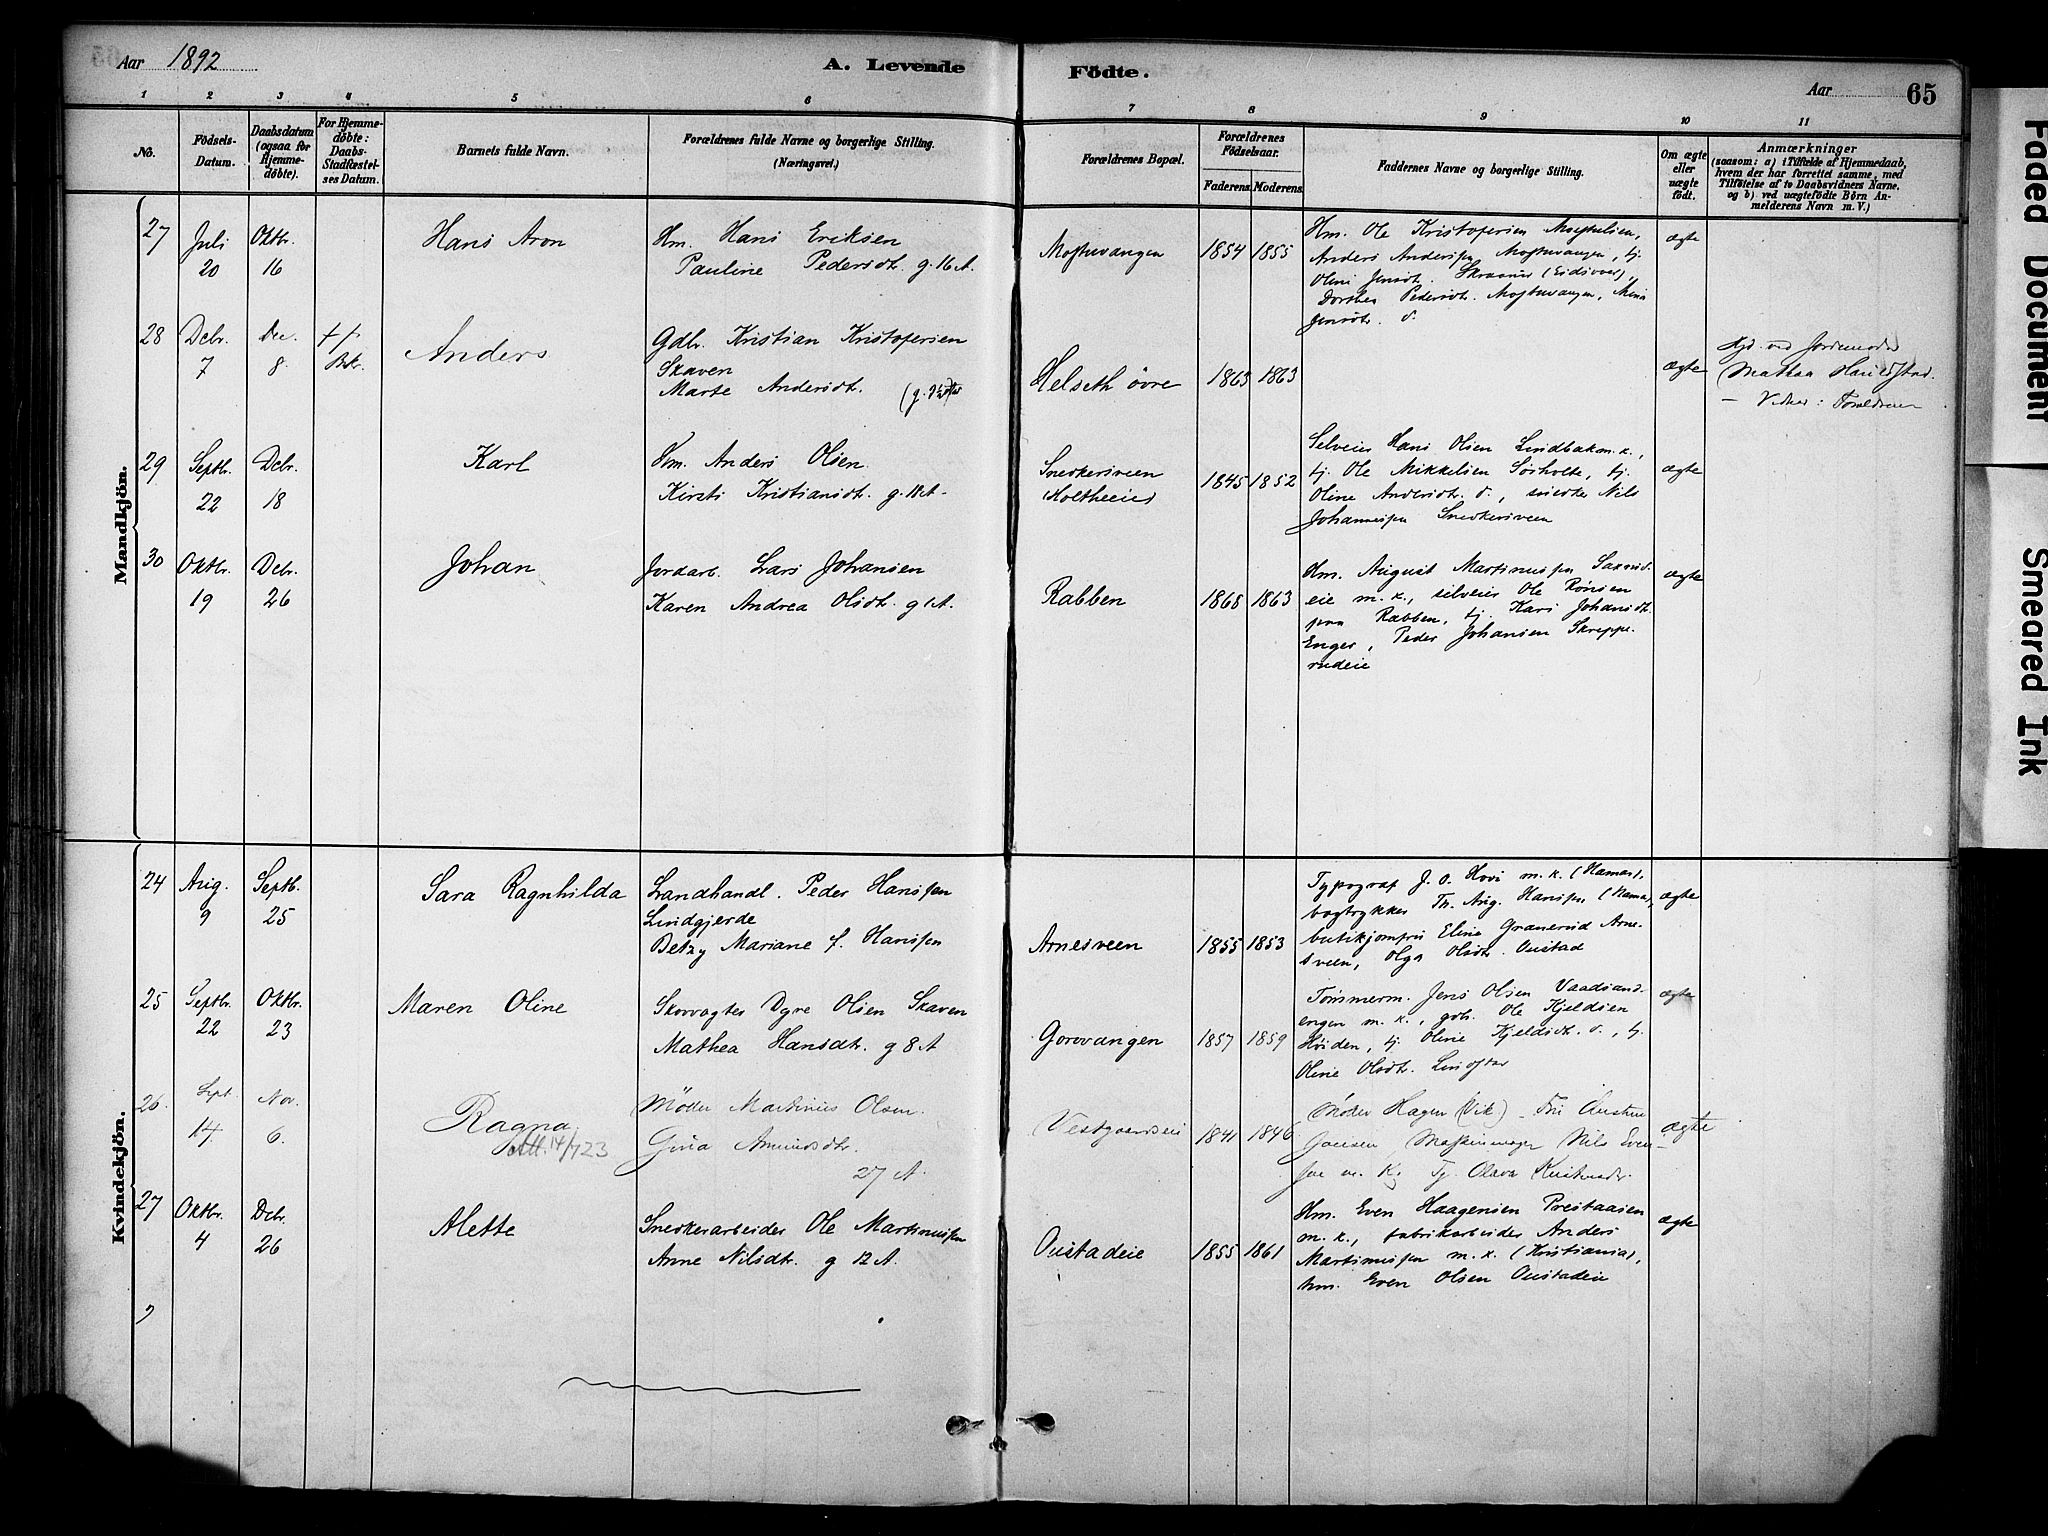 Aar 1892
A. Levende Födte.
Aar
65
1 2 3 4 5 6 7 8 9 10 11
No.
Födsels-Datum.
Daabsdatum (ogsaa for Hjemme-døbte).
For Hjemme-døbte: Daabs-Stadfæstelses Datum.
Barnets fulde Navn.
Forældrenes fulde Navne og borgerlige Stilling. (Næringsvei.)
Forældrenes Bopæl.
Forældrenes Födselsaar.
Faderens. Moderens.
Faddernes Navne og borgerlige Stilling.
Om ægte eller uægte födt.
Anmærkninger
(saasom: a) i Tilfælde af Hjemmedaab,
hvem der har forrettet samme, med
Tilföielse af to Daabsvidners Navne,
og b) ved uægtefödte Börn An-
melderens Navn m. V.)
Mandkjön.
27 Juli 20 Oktbr. 16
Hans Aron
Hm. Hans Eriksen
Pauline Pedersdt. g. 16 A.
1854 1855
Hm. Ole Kristofersen
Anders Anderssen tj.
Oline Jensdt. (Eidsvold),
Dorthea Pedersdt.
Jensdtr. d.
ægte
28 Debr. 7 Dec. 8
Anders
Gdbr. Kristian Kristofersen
Skaven
Marte Andersdt.
Helseth övre 1863 1863
ægte
Hjd. ved Jordemoder
Mathea
Forældrene
29 Septbr. 22 Debr. 18
Karl
Hm. Anders Olsen
Kirsti Kristiansdt. g. 18 A.
Snedkersveen
Holtheeie 1845 1852
Selveier Hans Olsen Lindbak m. k.,
tj. Ole Mikkelsen Sörholte, tj.
Oline Andersdt. d., snedker Nils
Johannessen Snedkersveen
ægte
30 Oktbr. 19 Debr. 26
Johan
Jordarb. Lars Johansen
Karen Andrea Olsdt. g 1 A.
Rabben 1868 1863
Hm. August Martinussen
eie m. k., selveier Ole Rönsen
paa Rabben, tj. Kari Johansdt.
Enger, Peder Johansen Skreppe-
rudeie
ægte
Kvindekjön.
24 Aug. 9 Septb. 25
Sara Ragnhilda
Landhandl. Peder Hanssen
Lindgjerde
Betzy Mariane f. Hanssen
Arnesveen 1855 1853
Typograf J. O. Hovi m. k. (Hamar),
bogtrykker Th. Aug. Hanssen (Hamar),
butikjomfru Eline Granerud Arne-
sveen, Olga Olsdt. Oustad
ægte
25 Septbr. 22 Oktbr. 23
Maren Oline
Skovvogter Dyre Olsen Skaven
Mathea Hansdtr. g 8 A
Gorovangen 1857 1859
Tömmerm. Jens Olsen Vaadsand-
engen m. k., gbr. Ole Kjeldsen
Höiden, tj. Oline Kjeldsdt. d., tj.
Oline Olsdt. Lindstad
ægte
26. Sept. 14. Nov. 6.
Ragna
Att. 14/7 23
Møller Martinius Olsen
Gina Amundsdtr.
27 A.
Vestgaardseie 1841 1846
Møller Hagen (Vik)
Nils Even-
sen m. K. Tj. Olava
ægte
27 Oktbr. 4 Debr. 26
Alette
Snedkerarbeider Ole Martinussen
Anne Nilsdtr. g 12 A.
Oustadeie 1855 1861
Hm. Even Haagensen
m. k., fabrikarbeider Anders
Martinussen m. k. (Kristiania),
hm. Even Olsen Oustadeie
ægte
Faded Document
Smeared Ink